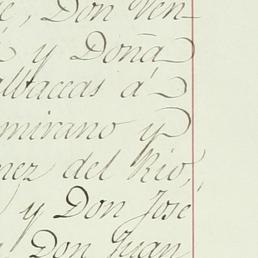 é, Don Ven-
é y Doña
albaceas á
mirano y
nez del Rio,
y Don José
Don Juan